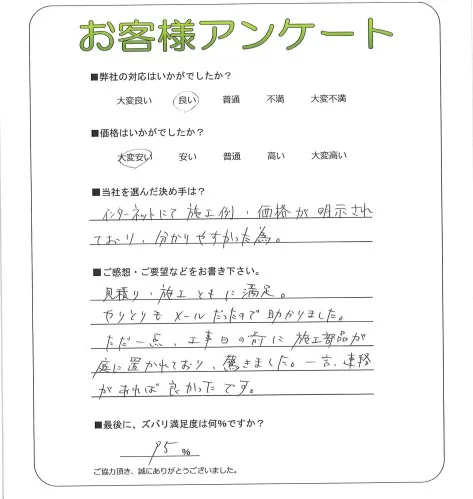 お客様アンケート
■弊社の対応はいかがでしたか?
大変良い 良い 普通 不満 大変不満
■価格はいかがでしたか?
大変安い 安い 普通 高い 大変高い
■当社を選んだ決め手は?
インターネットにて施工例、価格が明示され
ており、分かりやすかった為。
■ご感想・ご要望などをお書き下さい。
見積り、施工ともに満足。
やりとりもメールだったので助かりました。
ただ一点、工事日の前に施工部品が
庭に置かれており、驚きました。一言、連絡
があれば良かったです。
■最後に、ズバリ満足度は何%ですか?
95 %
ご協力頂き、誠にありがとうございました。